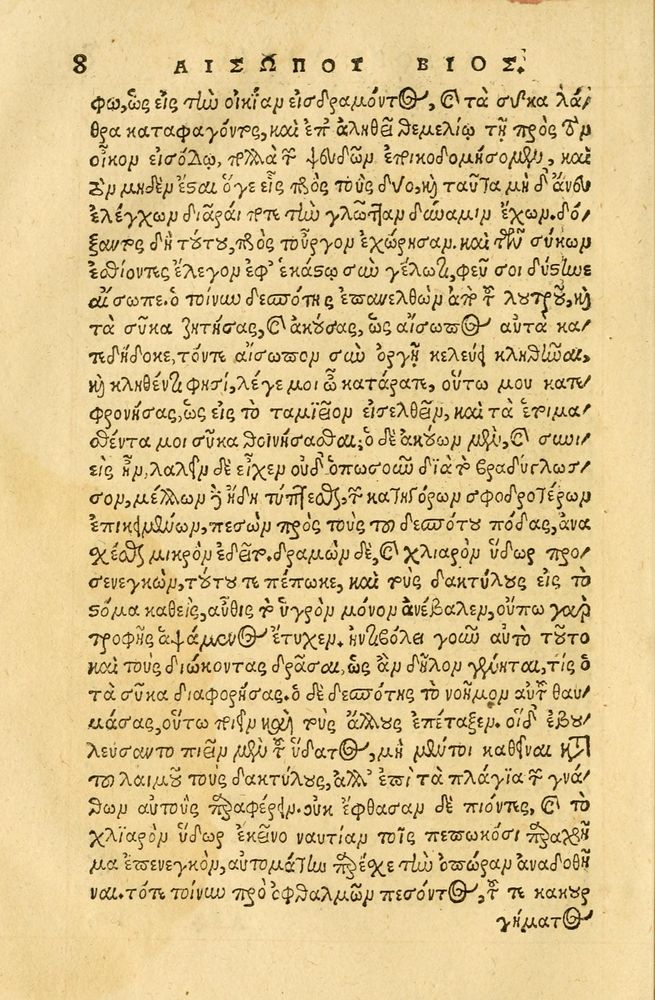 8 ΑΙΣΩΠΟΥ ΒΙΟΣ.
φω, ὡς εἰς τὴν οἰκίαν εἰσδραμόντος, καὶ τὰ σύκα λά-
θρα καταφαγόντος, καὶ ἐπ' ἀληθεῖ θεμελίῳ τῇ πρὸς τὸν
οἶκον εἰσόδῳ, πολλὰ τῶν ψευδῶν ἐπικοδομήσομεν, καὶ
οὐ μηδὲν ἔσαι ὅγε εἷς πρὸς τοὺς δύο, καὶ ταῦτα μὴ δ' ἄνευ
ἐλέγχων διᾶραί ποτε τὴν γλῶτταν δύναμιν ἔχων. δό-
ξαντος δὴ τούτου, πρὸς τοὖργον ἐχώρησαν. καὶ τῶν σύκων
ἐσθίοντες ἔλεγον ἐφ' ἑκάστῳ σὺν γέλωτι, φεῦ σοι δύστηνε
αἴσωπε. ὁ τοίνυν δεσπότης ἐπανελθὼν ἀπὸ τοῦ λουτροῦ, καὶ
τὰ σῦκα ζητήσας, καὶ ἀκούσας, ὡς αἴσωπος αὐτὰ κα-
τεδήδοκε, τόντε αἴσωπον σὺν ὀργῇ κελεύει κληθῆναι,
καὶ κληθέντι φησί, λέγε μοι ὦ κατάρατε, οὕτω μου κατε-
φρόνησας, ὡς εἰς τὸ ταμιεῖον εἰσελθεῖν, καὶ τὰ ἑτοιμα-
σθέντα μοι σῦκα θοινήσασθαι; ὁ δὲ ἀκούων μὲν, καὶ συνι-
εὶς ἦν, λαλεῖν δὲ εἶχεν οὐδ' ὁπωσοῦν διὰ τὸ βραδύγλωσ-
σον, μέλλων δὲ ἤδη τύπτεσθαι, τῶν κατηγόρων σφοδροτέρων
ἐπικειμένων, πεσὼν πρὸς τοὺς τοῦ δεσπότου πόδας, ἀνα-
σχέσθαι μικρὸν ἐδεῖτο. δραμὼν δὲ, καὶ χλιαρὸν ὕδωρ προ-
σενεγκὼν, τοῦτό τε πέπωκε, καὶ τοὺς δακτύλους εἰς τὸ
στόμα καθεὶς, αὖθις τὸ ὑγρὸν μόνον ἀνέβαλεν, οὔπω γὰρ
τροφῆς ἁψάμενος ἔτυχεν. ἠντιβόλει γοῦν αὐτὸ τοῦτο
καὶ τοὺς διώκοντας δρᾶσαι, ὡς ἂν δῆλον γένηται, τίς ὁ
τὰ σῦκα διαφορήσας. ὁ δὲ δεσπότης τὸ νοῆμον αὐτοῦ θαυ-
μάσας, οὕτω ποιεῖν καὶ τοὺς ἄλλους ἐπέταξεν. οἱ δ' ἐβου-
λεύσαντο πιεῖν μὲν τοῦ ὕδατος, μὴ μέντοι καθεῖναι κατὰ
τοῦ λαιμοῦ τοὺς δακτύλους, ἀλλ' ἐπὶ τὰ πλάγια τῶν γνά-
θων αὐτοὺς παραφέρειν. οὐκ ἔφθασαν δὲ πιόντες, καὶ τὸ
χλιαρὸν ὕδωρ ἐκεῖνο ναυτίαν τοῖς πεπωκόσι παραχρῆ-
μα ἐπενεγκὸν, αὐτομάτην παρέσχε τὴν ὀπώραν ἀναδοθῆ-
ναι. τότε τοίνυν πρὸ ὀφθαλμῶν πεσόντος, τοῦ τε κακουρ-
γήματος